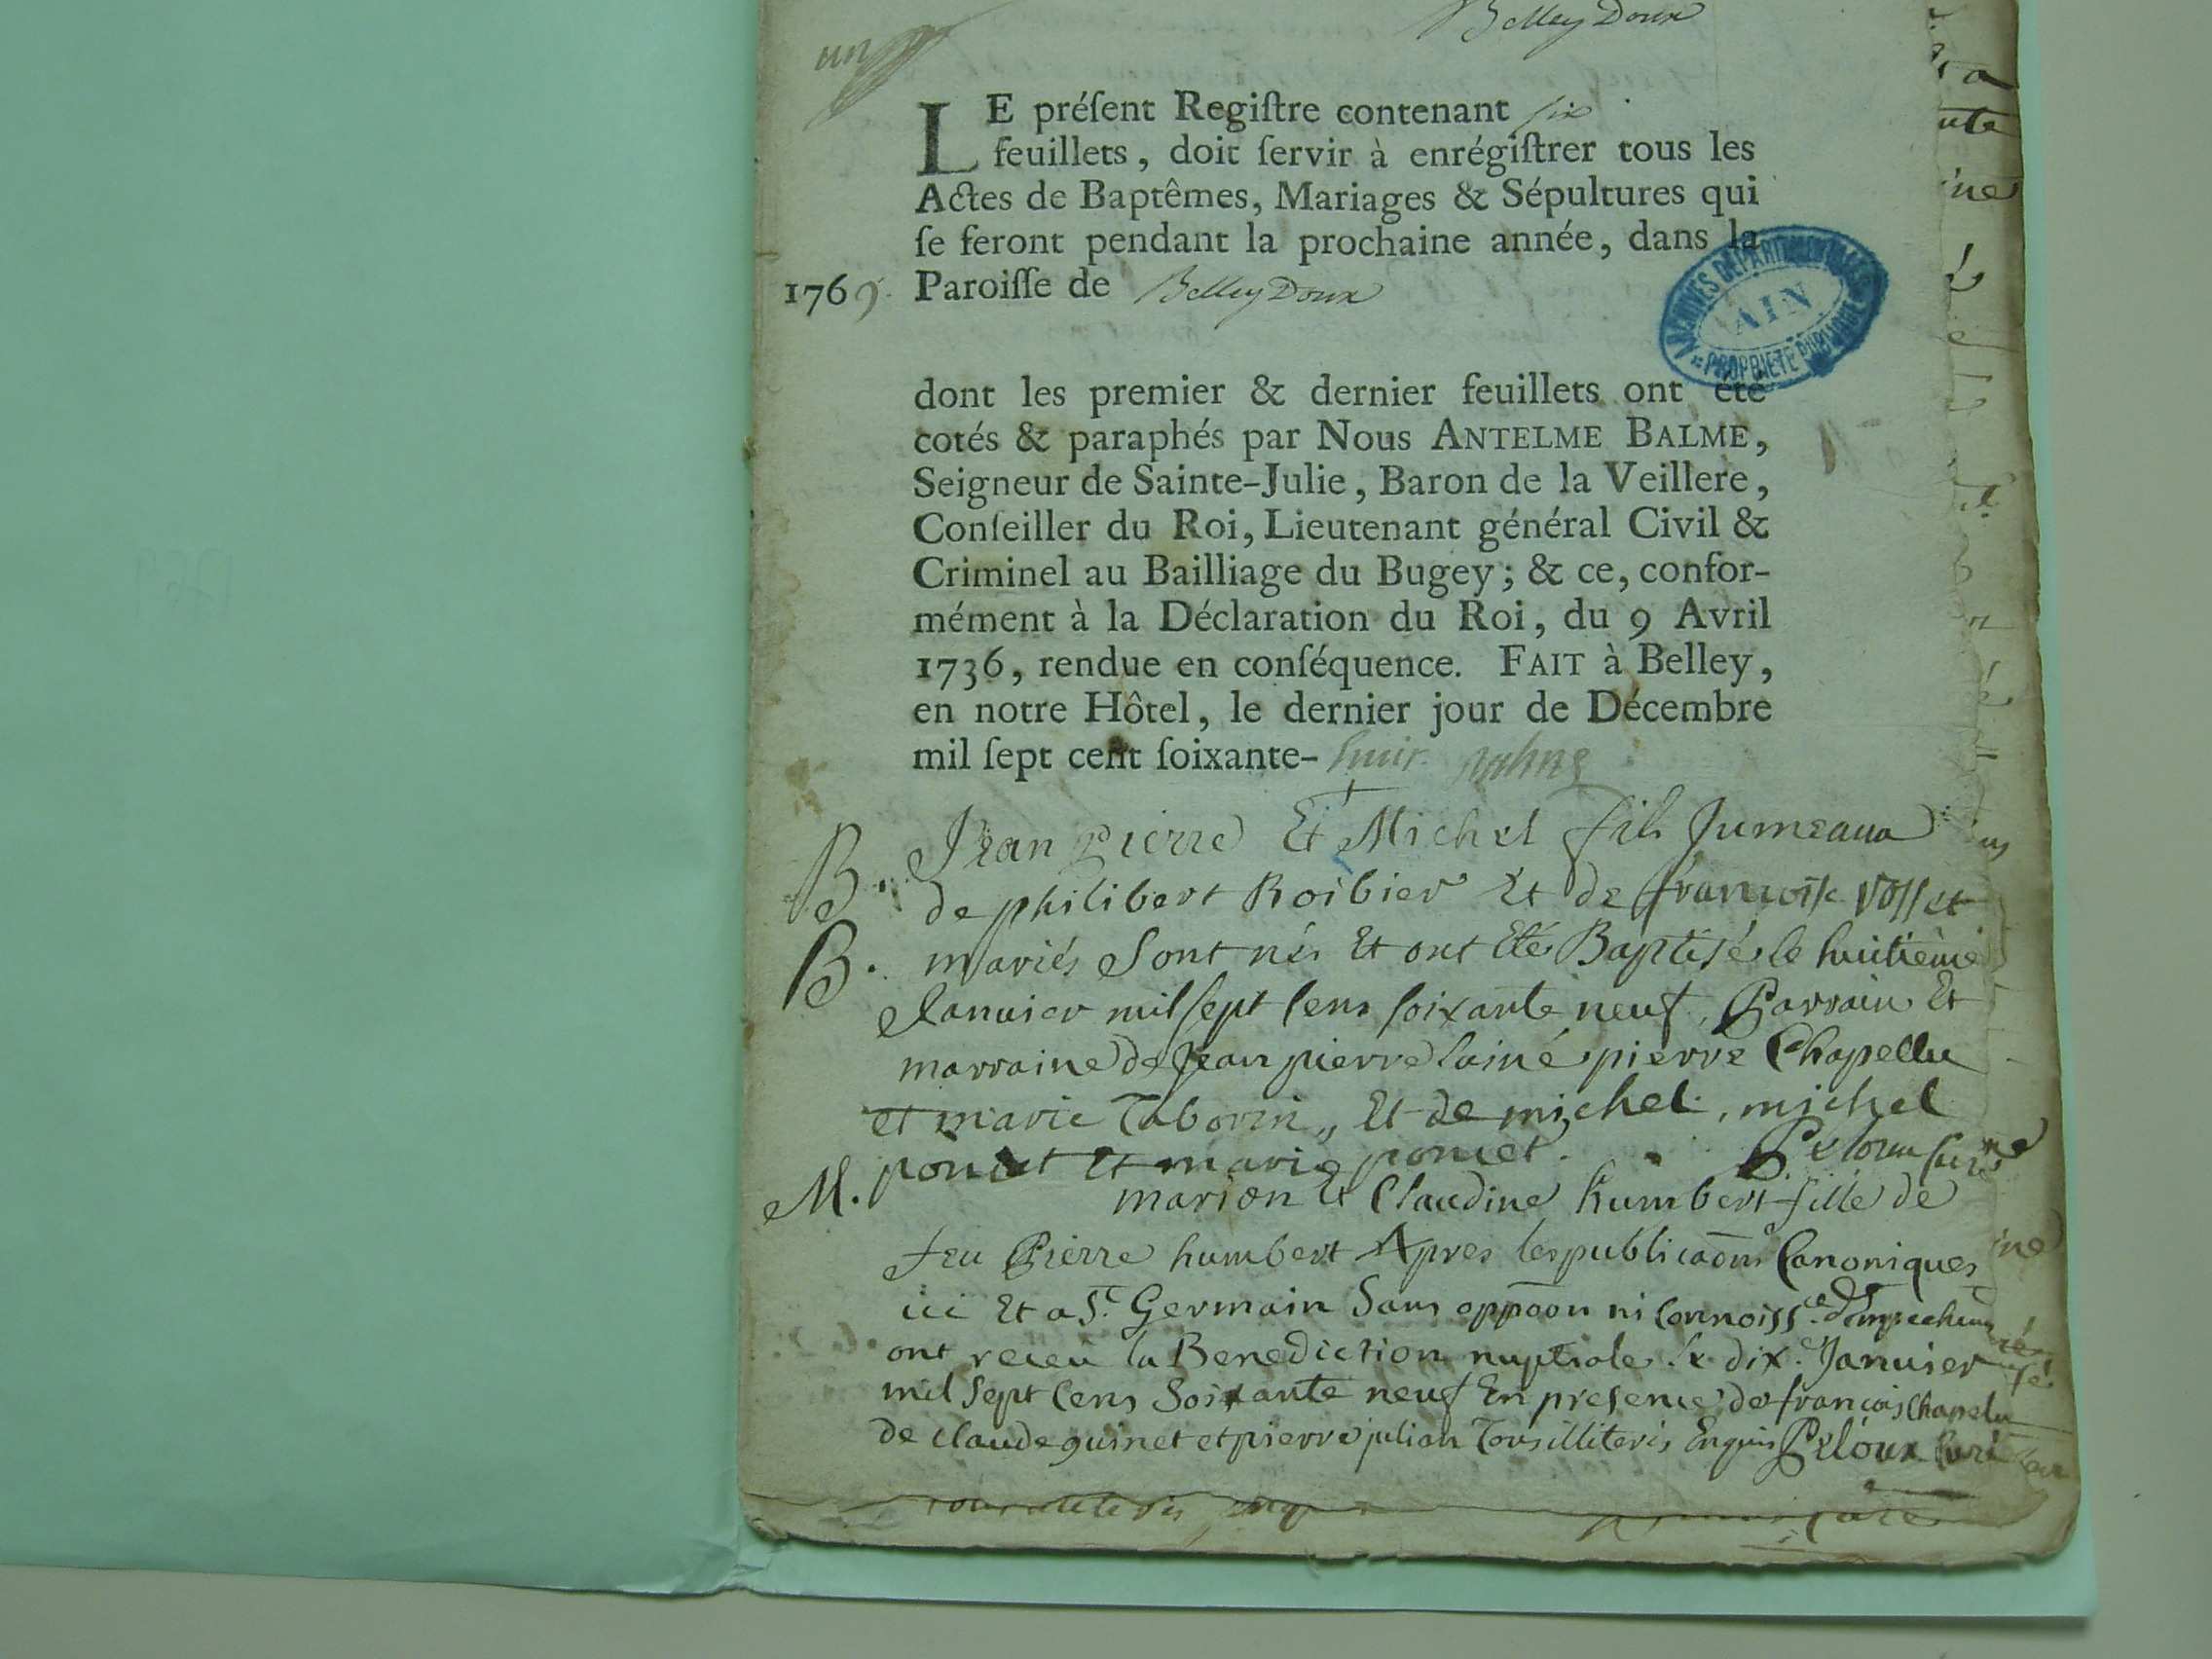 Belley Doux
un
LE préſent Regiſtre contenant ſix
feuillets, doit ſervir à enrégiſtrer tous les
Actes de Baptêmes, Mariages & Sépultures qui
ſe feront pendant la prochaine année, dans la
1769. Paroiſſe de Belley Doux
ARCHIVES DEPARTEMENTALES
AIN
PROPRIETE PUBLIQUE
dont les premier & dernier feuillets ont été
cotés & paraphés par Nous ANTELME BALME,
Seigneur de Sainte-Julie, Baron de la Veillere,
Conſeiller du Roi, Lieutenant général Civil &
Criminel au Bailliage du Bugey; & ce, confor-
mément à la Déclaration du Roi, du 9 Avril
1736, rendue en conſéquence. FAIT à Belley,
en notre Hôtel, le dernier jour de Décembre
mil ſept cent ſoixante- huit
Jean pierre Et Michel fils Jumeaux
B. de philibert Roibier Et de françoise Vosset
B. mariés Sont nés Et ont Eté Baptisés le huitieme
Januier mil sept cens soixante neuf, Parrain Et
marraine de Jean pierre lainé pierre Chapellu
et marie Taborin, Et de michel, michel
poncet Et marie poncet. Peloux curé
M. marion Et Claudine humbert fille de
feu Pierre humbert Apres les publicaons Canoniques
ici Et a St. Germain Sans oppaon ni connoiss.ce d'Empechem
ont receu la Benediction nuptiale le dix Januier
mil Sept Cens Soixante neuf En presence de francois Chapelu
de claude guinet et pierre julian Tous illiteris Enquis Peloux Curé